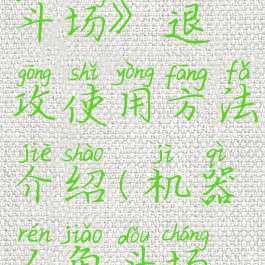 斗场》退
gōng shǐ yòng fāng fǎ
攻使用方法
jiē shào jī qì
介绍(机器
rén jiǎo dǒu cháng
人角斗场